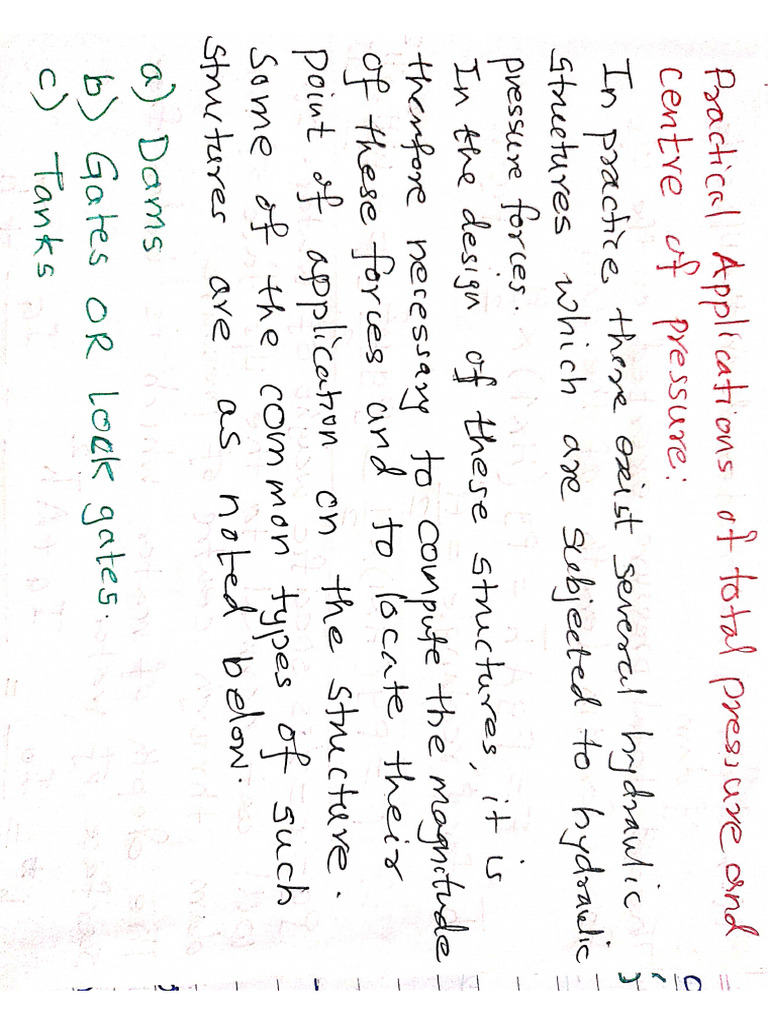 Practical Applications of total pressure and
centre of pressure:
In practice there exist several hydraulic
structures which are subjected to hydraulic
pressure forces.
In the design of these structures, it is
therefore necessary to compute the magnitude
of these forces and to locate their
point of application on the structure.
Some of the common types of such
structures are as noted below.
a) Dams
b) Gates OR lock gates.
c) Tanks